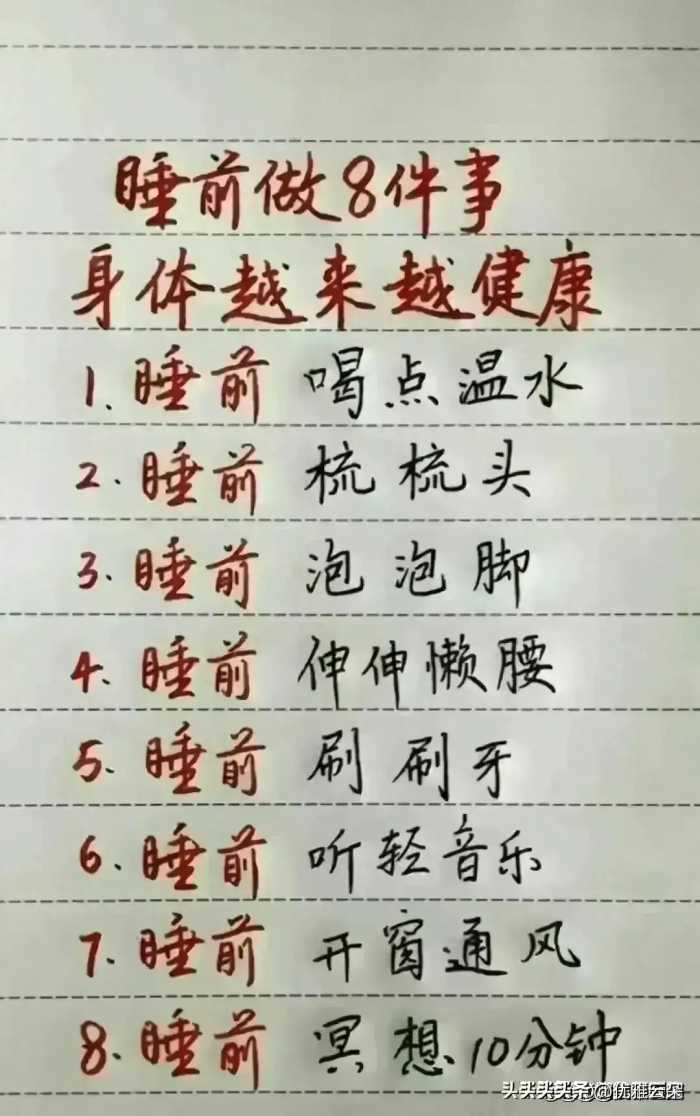 睡前做8件事
身体越来越健康
1.睡前 喝点温水
2.睡前 梳梳头
3.睡前 泡泡脚
4.睡前 伸伸懒腰
5.睡前 刷刷牙
6.睡前 听轻音乐
7.睡前 开窗通风
8.睡前 冥想10分钟
头条@优雅云朵